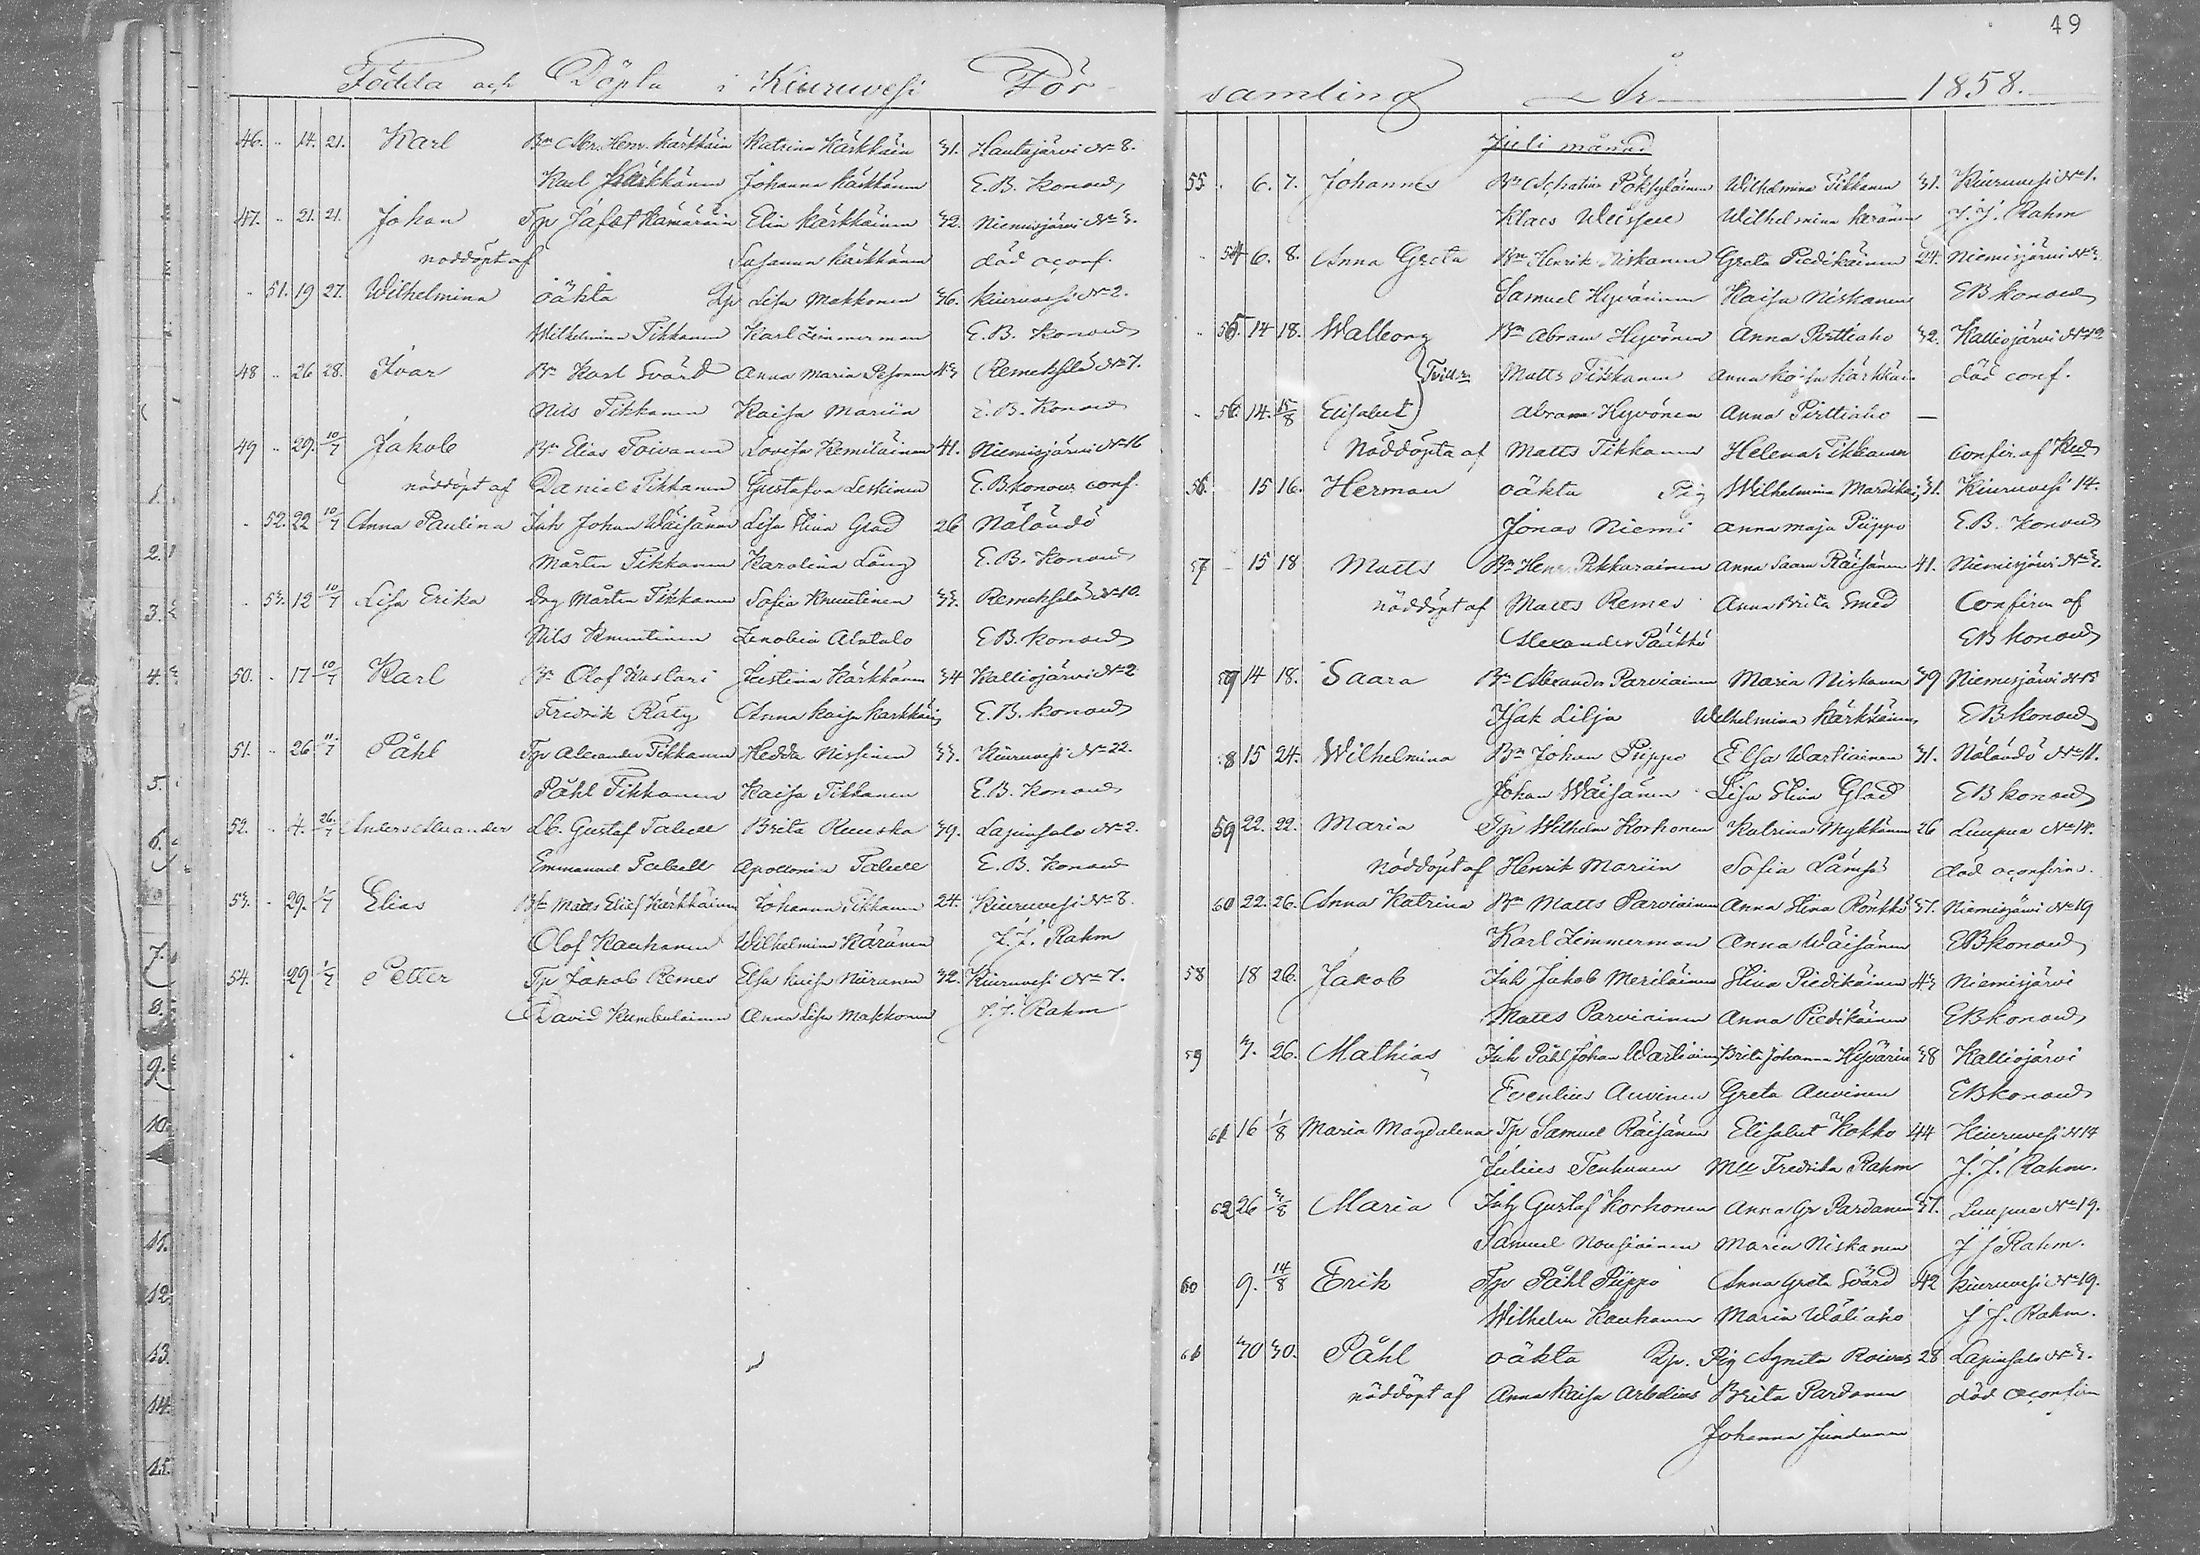 49
Födda och Döpta i Kiuruvesi För-
46. .. 14. 21. Karl Bn Abr. Henr. Kärkkäin Katrina Kärkkäin 31. Hautajärvi No 8.
Karl Kärkkänen Johanna Kärkkänen E.B. Konow
47. .. 21. 21. Johan Tp Jafet Kämäräin Elin Kärkkäinen 32. Niemisjärvi No 3.
nöddöpt af Susanna Kärkkänen död oconf.
.. 51. 19 27. Wilhelmina oäkta Lp Lisa Makkonen 36. Kiuruvesi No 2.
Wilhelmina Tikkanen Karl Zimmerman E.B. Konow
48 .. 26 28. Ivar Bn Karl Svärd Anna Maria Pesonen 43 Remeksela No 7.
Nils Tikkanen Kaisa Mariin E.B. Konow
49 .. 29. 10/7 Jakob Bn Elias Toivanen Lovisa Remiläinen 41. Niemisjärvi No 16
nöddöpt af Daniel Tikkanen Gustafva Leskinen E.B. Konow conf.
.. 52. 22 10/7 Anna Paulina Inh Johan Wäisänen Lisa Stina Glad 26 Näländö
Mårten Tikkanen Karolina Lång E.B. Konow
.. 53. 12 10/7 Lisa Erika Drg Mårten Tikkanen Sofia Knuutinen 33. Remeksela No 10.
Nils Knuutinen Zenobia Alatalo E.B. Konow
50. .. 17 10/7 Karl Bn Olof Huslari Kristina Kärkkänen 34 Kalliojärvi No 2
Fredrik Räty Anna Kaisa Kärkkäin E.B. Konow
51. .. 26 11/7 Påhl Tp Alexander Tikkanen Hedda Nissinen 33. Kiuruvesi No 22.
Påhl Tikkanen Kaisa Tikkanen E.B. Konow
52. .. 4. 26/7 Anders Alexander Lb. Gustaf Tabell Brita Ruuska 39. Lapinsalo No 2.
Emmanuel Tabell Apollonia Tabell E.B. Konow
53. .. 29. 1/7 Elias Bn Matts Elias Kärkkäinen Johanna Tikkanen 24. Kiuruvesi No 8.
Olof Kauhanen Wilhelmina Käränen J.J. Rahm
54. 29 1/7 Petter Tp Jakob Remes Elsa Kaisa Niiranen 32. Kiuruvesi No 7.
David Kumbulainen Anna Lisa Makkonen J.J. Rahm
samling År 1858.
Juli månad
55. 6. 7. Johannes Bn Wilhelmina Tikkanen 31. Kiuruvesi No 1.
Klaes Weissell Wilhelmina Keränen J.J. Rahm
.. 54 6. 8. Anna Greta Bn Henrik Niskanen Greta Piedikäinen 24. Niemisjärvi No 3.
Samuel Hyvärinen Kaisa Niskanen EB Konow
.. 55. 14 18. Walborg Bn Abram Hyvönen Anna Pirttiaho 32. Kalliojärvi No 12
Tvill. Matts Tikkanen Anna Kaisa Kärkkäin död conf.
.. 56. 14. 15/8 Elisabet Abram Hyvönen Anna Pirttiaho —
Nöddöpta af Matts Tikkanen Helena Tikkanen confir. af
56. 15 16. Herman oäkta Pig Wilhelmina Mardikai 31. Kiuruvesi 14.
Jonas Niemi Anna Maja Piippo E.B. Konow
57 15 18 Matts Bn Henr. Pikkarainen Anna Saara Räisänen 41. Niemisjärvi No 3.
nöddöpt af Matts Remes Anna Brita Smed Confirm af
Alexander Pänkkö EB Konow
59 14 18. Saara Bn Alexander Parviainen Maria Niskanen 39 Niemisjärvi No 15
Isak Lilja Wilhelmina Kärkkäinen EB Konow
58 15 24. Wilhelmina Bn Johan Piippo Elsa Wartiainen 31. Näländö No 11.
Johan Wäisänen Lisa Stina Glad EB Konow
59 22. 22. Maria Tp Wilhelm Korhonen Katrina Mykkänen 26 Luupua No 14.
nöddöpt af Henrik Mariin Sofia Lämsä död oconfirm.
60 22. 26. Anna Katrina Bn Matts Parviainen Anna Stina Rönkkö 37. Niemisjärvi No 19
Karl Zimmerman Anna Wäisänen EB Konow
58 18 26. Jakob Inh Jakob Meriläinen Stina Piedikäinen 43 Niemisjärvi
Matts Parviainen Anna Piedikäinen EB Konow
59 3. 26. Mathias Inh Påhl Johan Wartiain Brita Johanna Hyvärin 38 Kalliojärvi
Evenlius Auvinen Greta Auvinen EB Konow
61 16 1/8 Maria Magdalena Tp Samuel Räisänen Elisabet Kokko 44 Kiuruvesi No 14
Julius Tenhunen Mll Fredrika Rahm J.J. Rahm.
62 26 3/8 Maria Inh Gustaf Korhonen Anna Gr Pardanen 37. Luupua No 19.
Samuel Nousiainen Maria Niskanen J J Rahm.
60 9. 14/8 Erik Tp Påhl Piippo Anna Greta Svärd 42 Kiuruvesi No 19.
Wilhelm Kauhanen Maria Wäliaho J J. Rahm.
61 30 30. Påhl oäkta Lp. Pig Agneta Roivas 28 Lapinsalo No 3.
nöddöpt af Anna Kaisa Arbelius Brita Pardanen död oconfirm
Johanna Jundunen